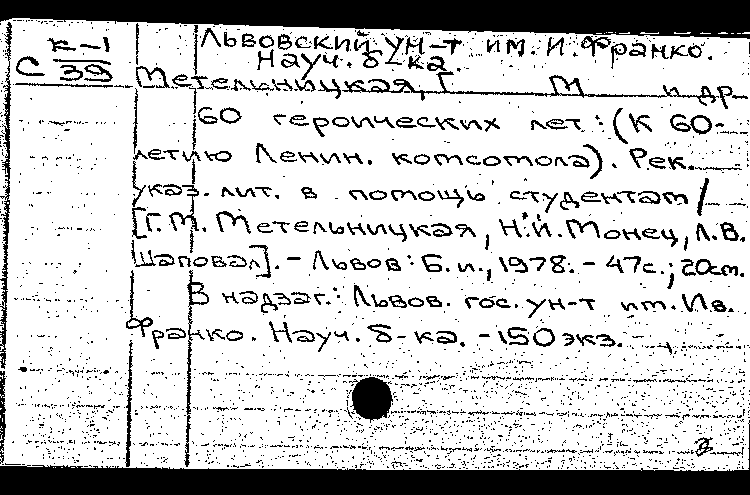 Львовский ун-т им. И. Франко.
Науч. б-ка.
к-1
С 39
Метельницкая, Г. М. и др
60 героических лет: (К 60-
летию Ленин. комсомола). Рек.
указ. лит. в помощь студентам /
[Г. М. Метельницкая, Н. Й. Монец, Л. В.
Шаповал]. - Львов: Б. и., 1978. - 47с.; 20см.
В надзаг.: Львов. гос. ун-т им. Ив.
Франко. Науч. б-ка. - 150 экз.